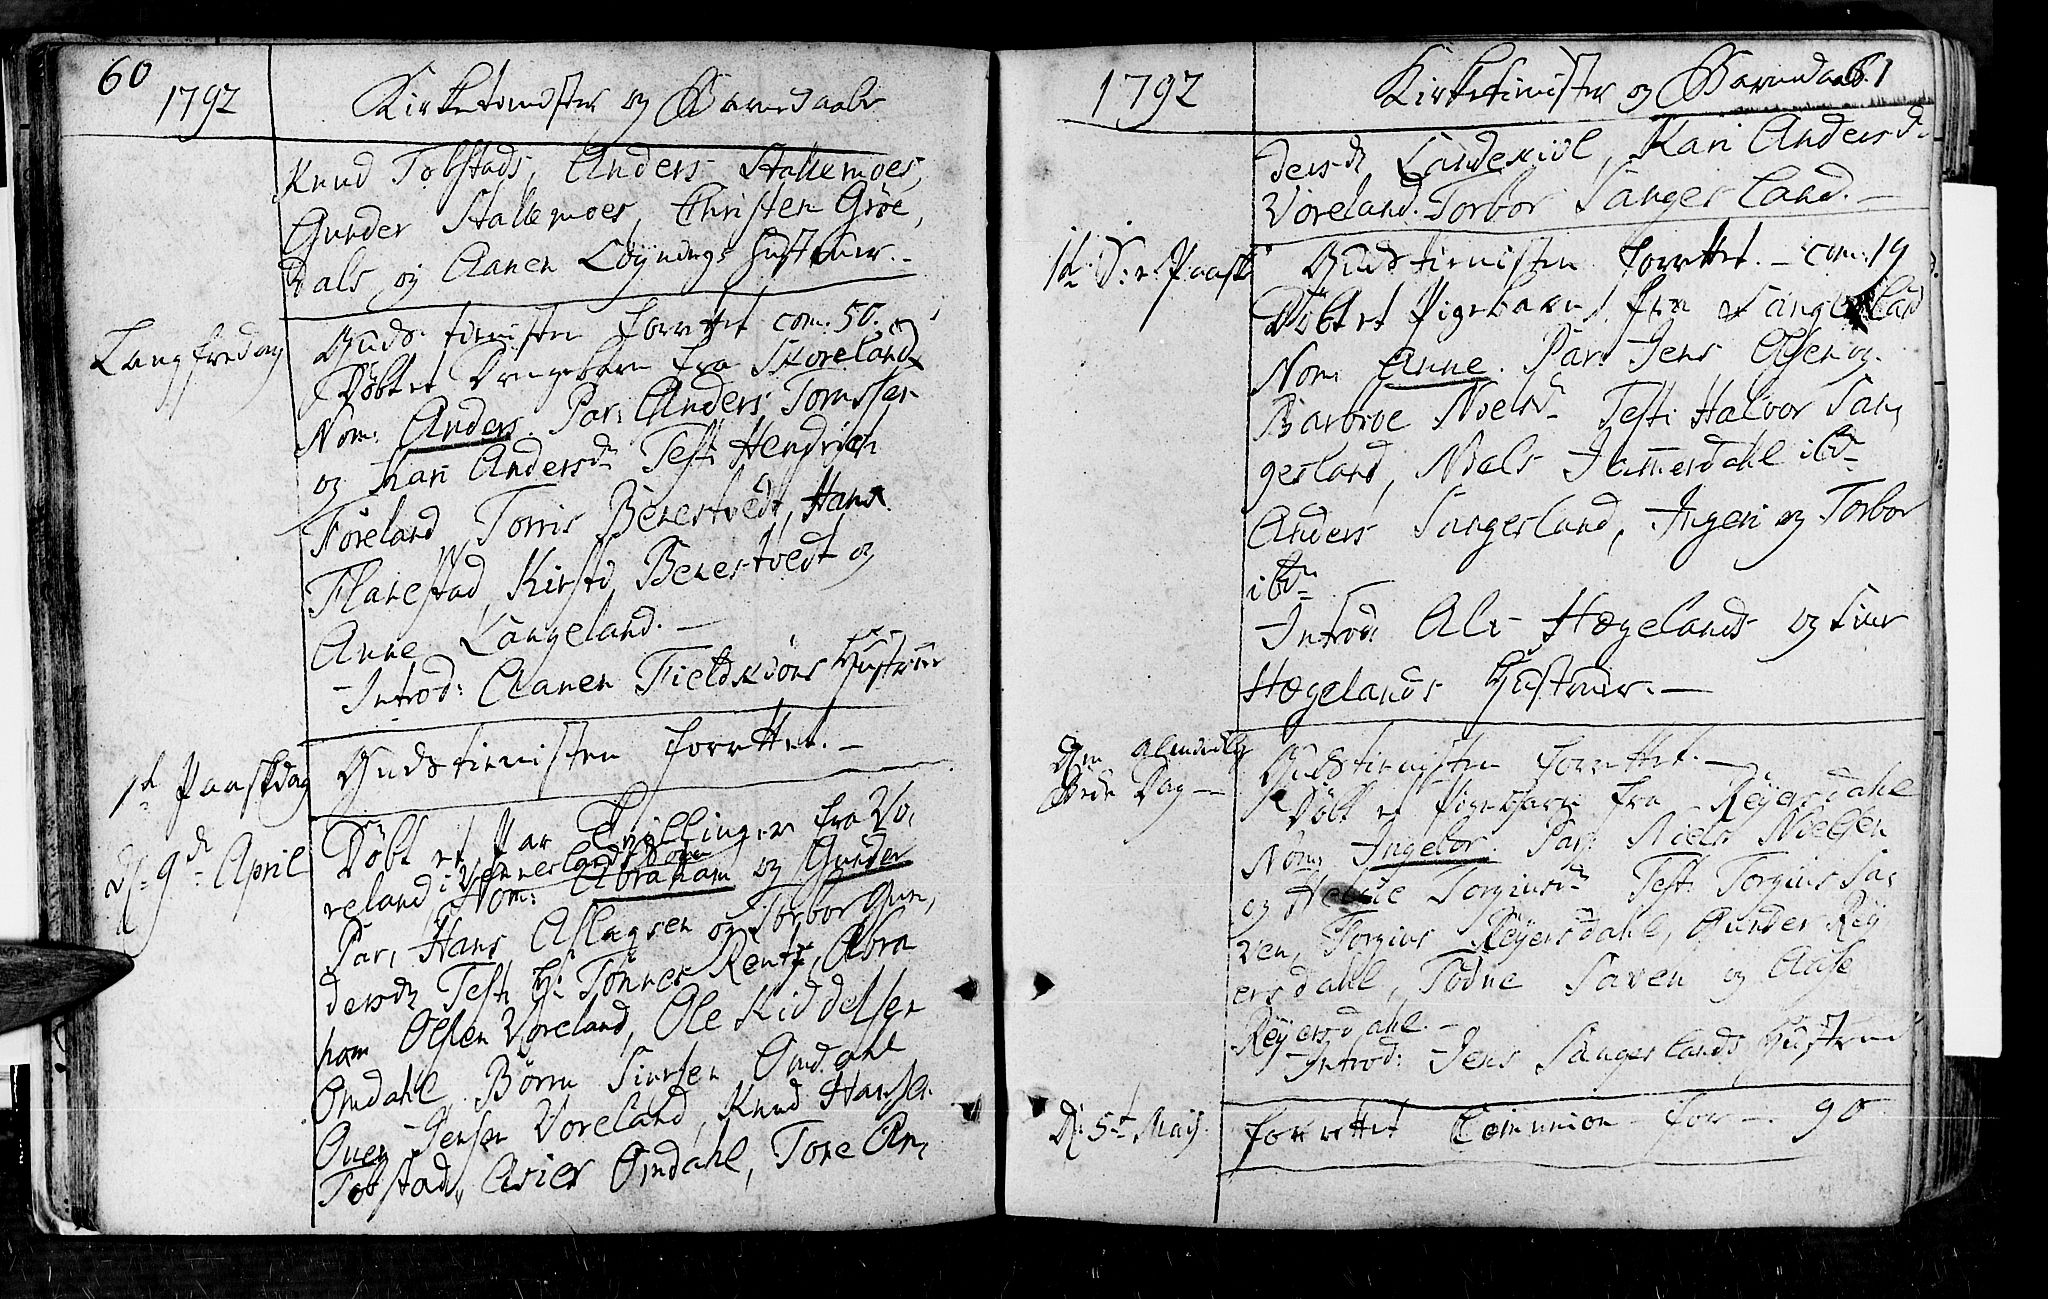 60
1792
Kirketienister og Barnedaabe
Knud Tobstads, Anders Stallemoes,
Gunder Stallemoes, Christen Grøe,
dals og Aanen Løynings Hustruer. -
Langfredag
Guds tienisten forrettet com: 50.
Døbt et Drengebarn fra Skoreland
Nom: Anders. Par: Anders Tomssen
og Kari Andersdr Test: Hendrich
Føreland, Torris Benestvedt, Hans
Flanestad, Kirstd Benestvedt og
Anne Langeland. -
Introd: Aanen Fieldskiøns Hustrue
1te Paaskedag
Gudstienisten forrettet. -
D: 9de April
Døbt et Par Tvillinger fra Vo,
reland i Venneslands Sogn
Nom: Abraham og Gunder
Par: Hans Aslagsen og Torbor Gun,
dersdr Test: Hr Tønnes Rentz, Abra
ham Olsen Voreland, Ole Kiddelsen
Omdahl, Børre Siursen Omdahl
Ouen Jensen Voreland, Knud Hansen
Tobstad, Asier Omdahl, Tone An,
1792
Kirketienister og Barnedaab. 61
dersdr Landekiøl, Kari Andersdr
Voreland. Torbor Sangesland. -
1te S: e: Paaske
Gudstienisten forrettet. - com: 19
Døbt et Pigebarn fra Sangesland
Nom: Anne. Par: Jens Olsen og
Barbroe Nielsdr Test: Halvor San,
gesland, Niels Jammersdahl ibdm
Anders Sangesland, Ingeri og Torbor
ibdm
Introd: Ale Hægelands og Siur
Hægelands Hustruer. -
Den Almindelig
Bede Dag -
Gudstienisten forrettet. -
Døbt et Pigebarn fra Reiersdahl
Nom: Ingebor. Par: Niels Nielsen
og Helje Torgiusdr Test: Torgius Sa,
ven, Torgius Reyersdahl, Gunder Rey
ersdahl, Todne Saven og Aase
Reyersdahl. -
Introd: Jens Sangeslands Hustrue
D: 5te Maij.
forrettet Communion for -. 90